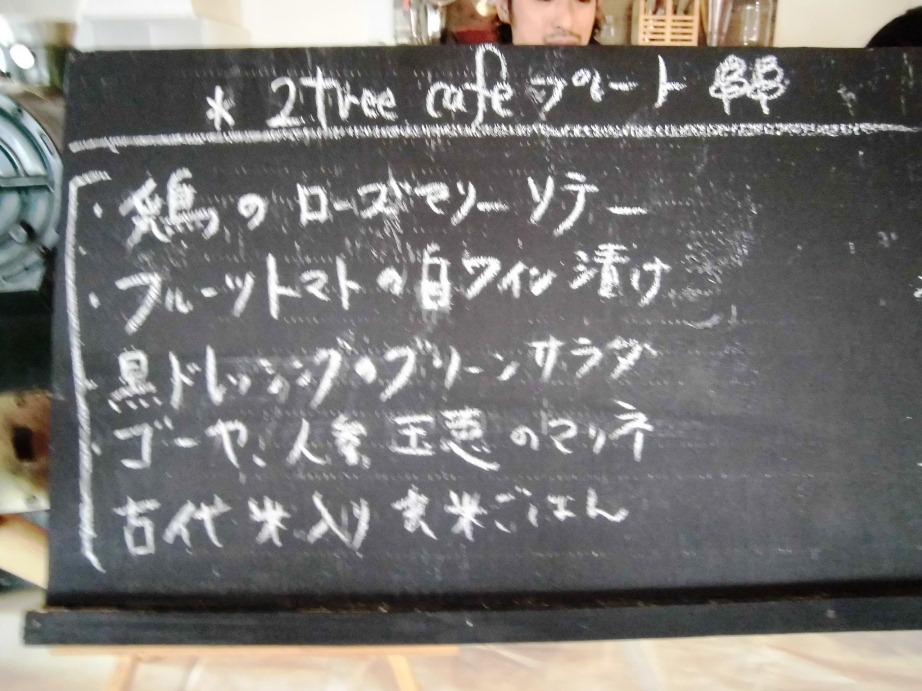 * 2tree cafe プレート
・鶏のローズマリーソテー
・フルーツトマトの白ワイン漬け
・黒ドレッシングのグリーンサラダ
・ゴーヤ、人参 玉葱のマリネ
古代米入り玄米ごはん